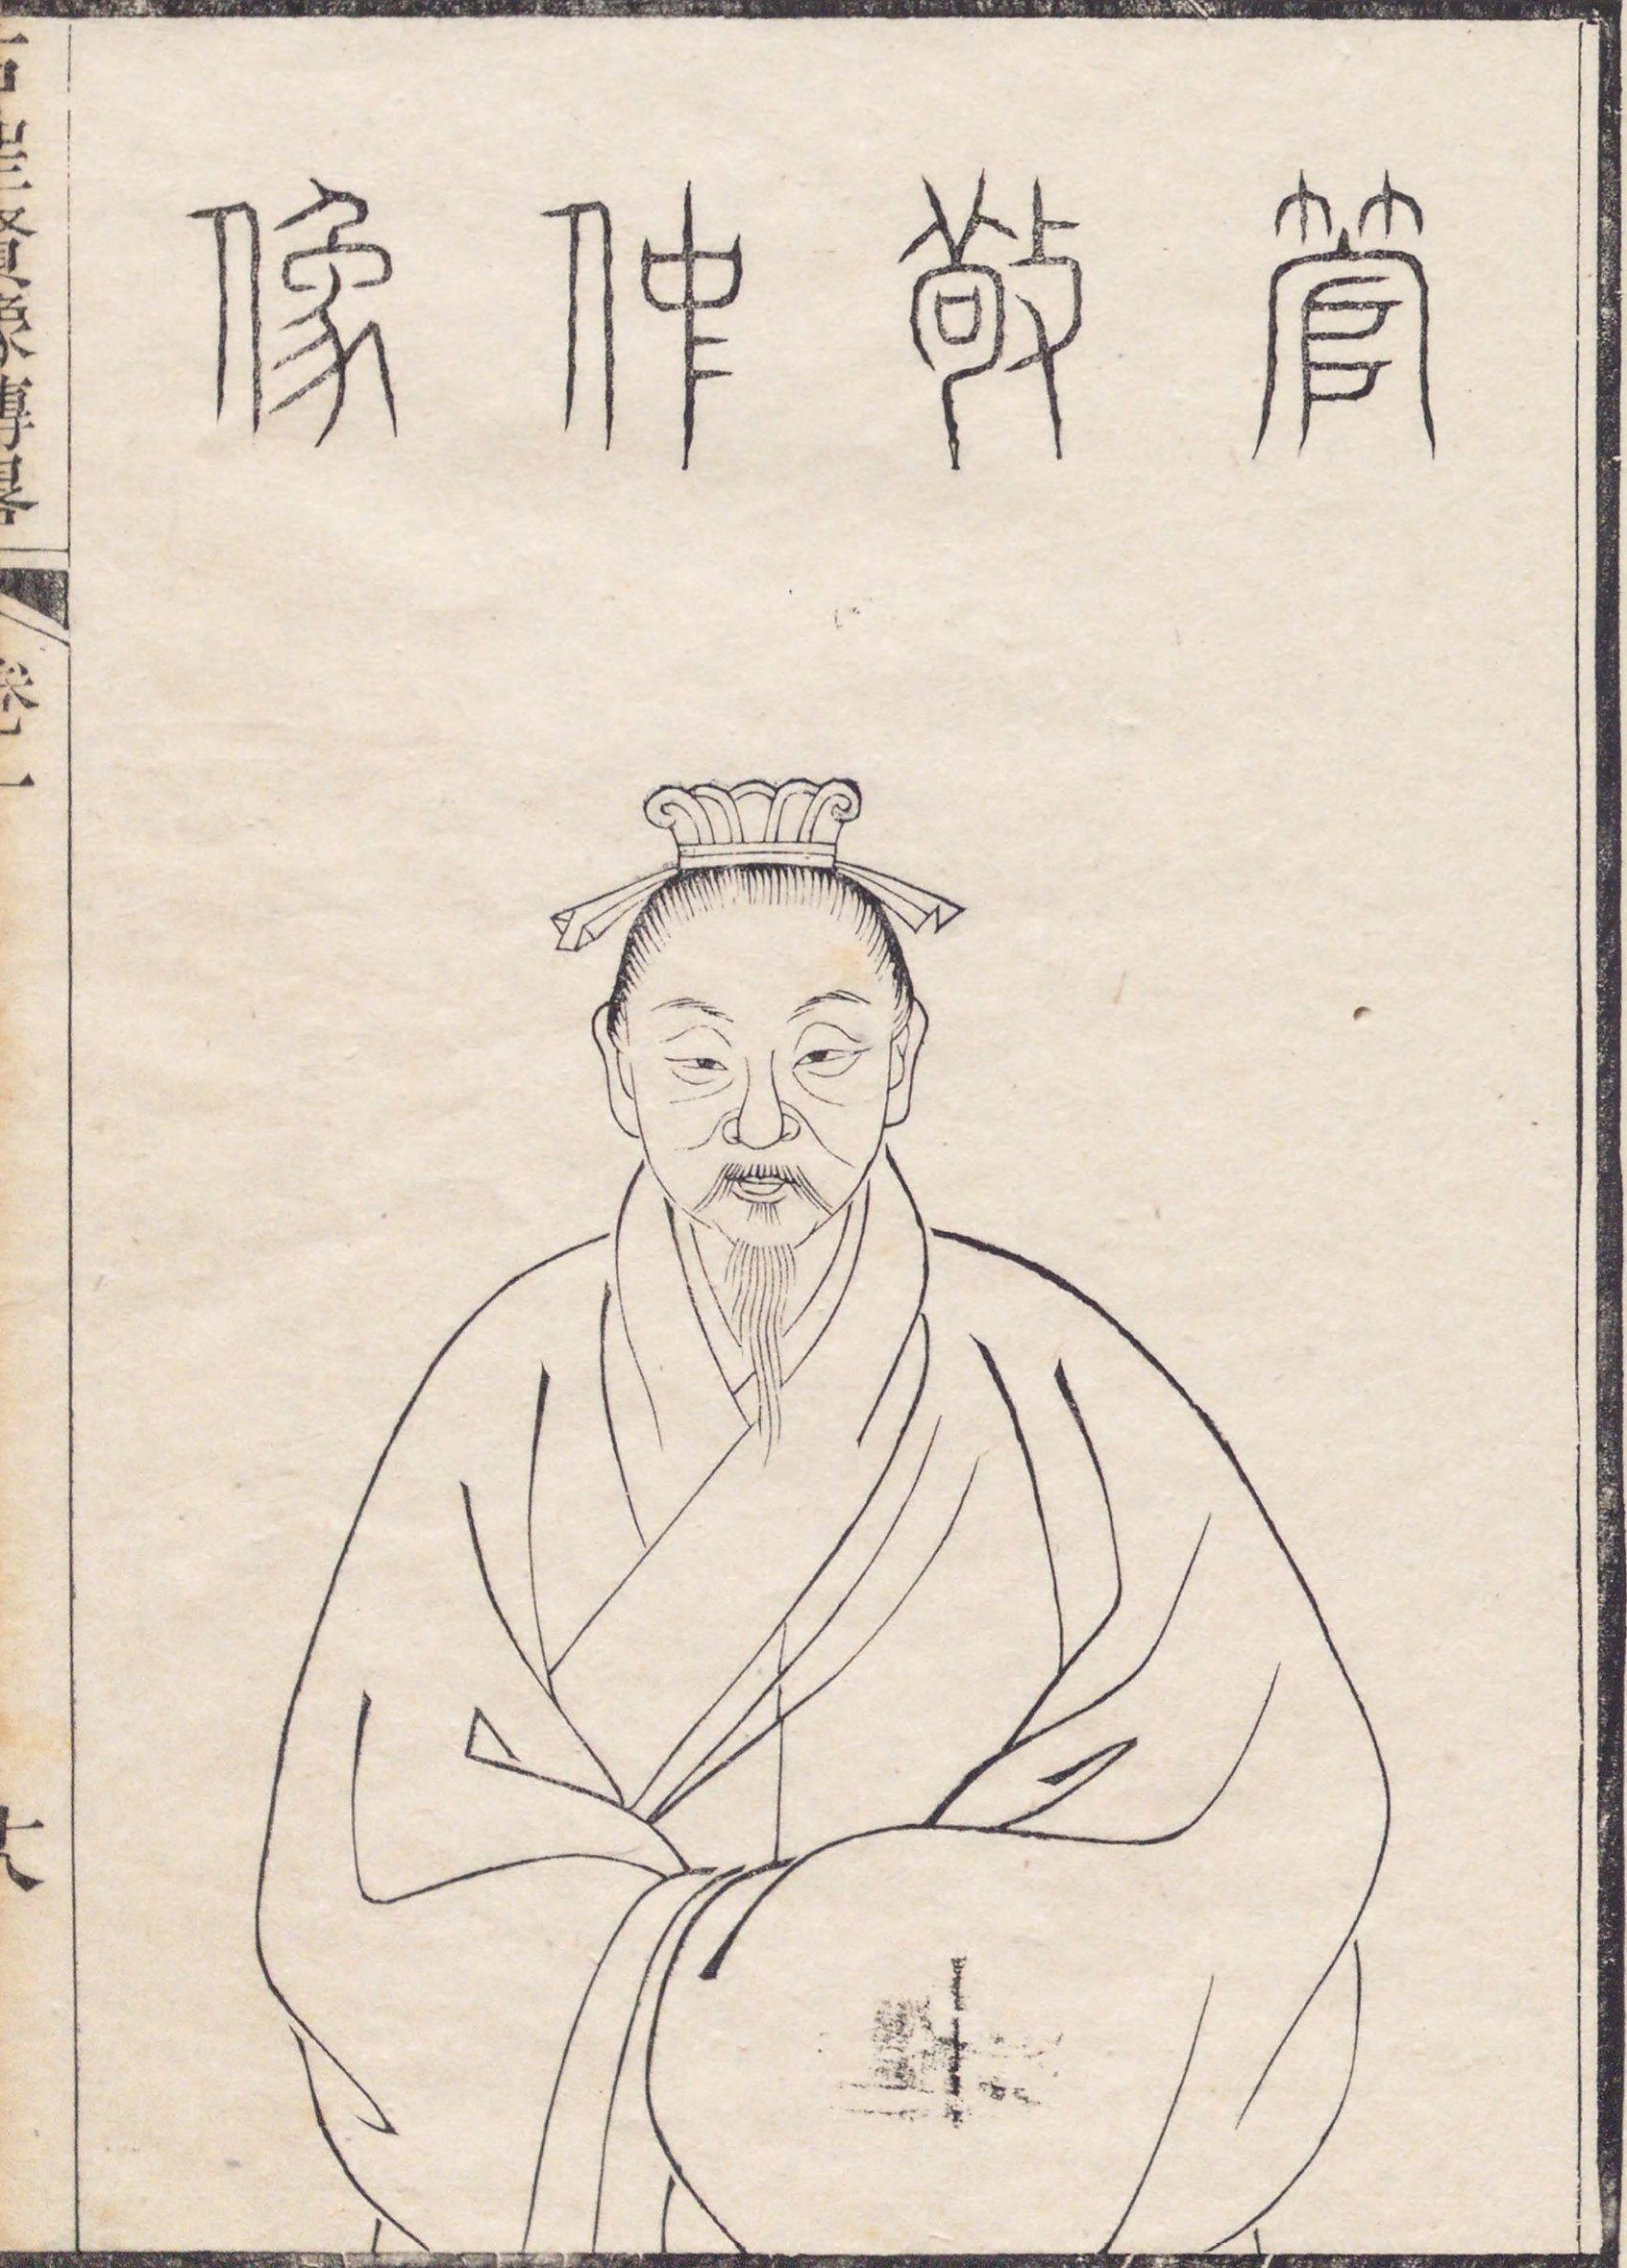 管敬仲像
聖賢像傳略
卷一